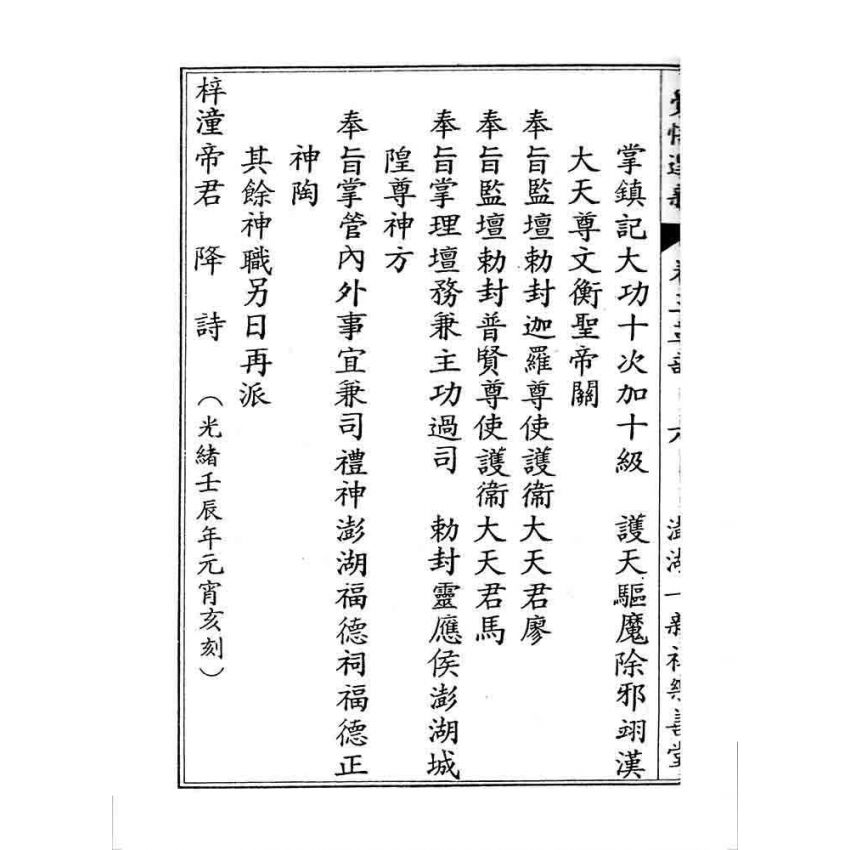 掌鎮記大功十次加十級　護天驅魔除邪翊漢
大天尊文衡聖帝關
奉旨監壇勅封迦羅尊使護衞大天君廖
奉旨監壇勅封普賢尊使護衞大天君馬
奉旨掌理壇務兼主功過司　勅封靈應侯澎湖城
隍尊神方
奉旨掌管內外事宜兼司禮神澎湖福德祠福德正
神陶
其餘神職另日再派
梓潼帝君　降　詩　（光緒壬辰年元宵亥刻）